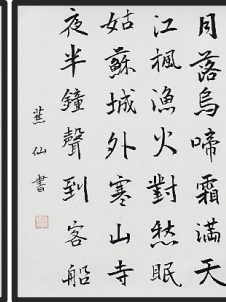 月落烏啼霜滿天
江楓漁火對愁眠
姑蘇城外寒山寺
夜半鐘聲到客船
蕉仙書